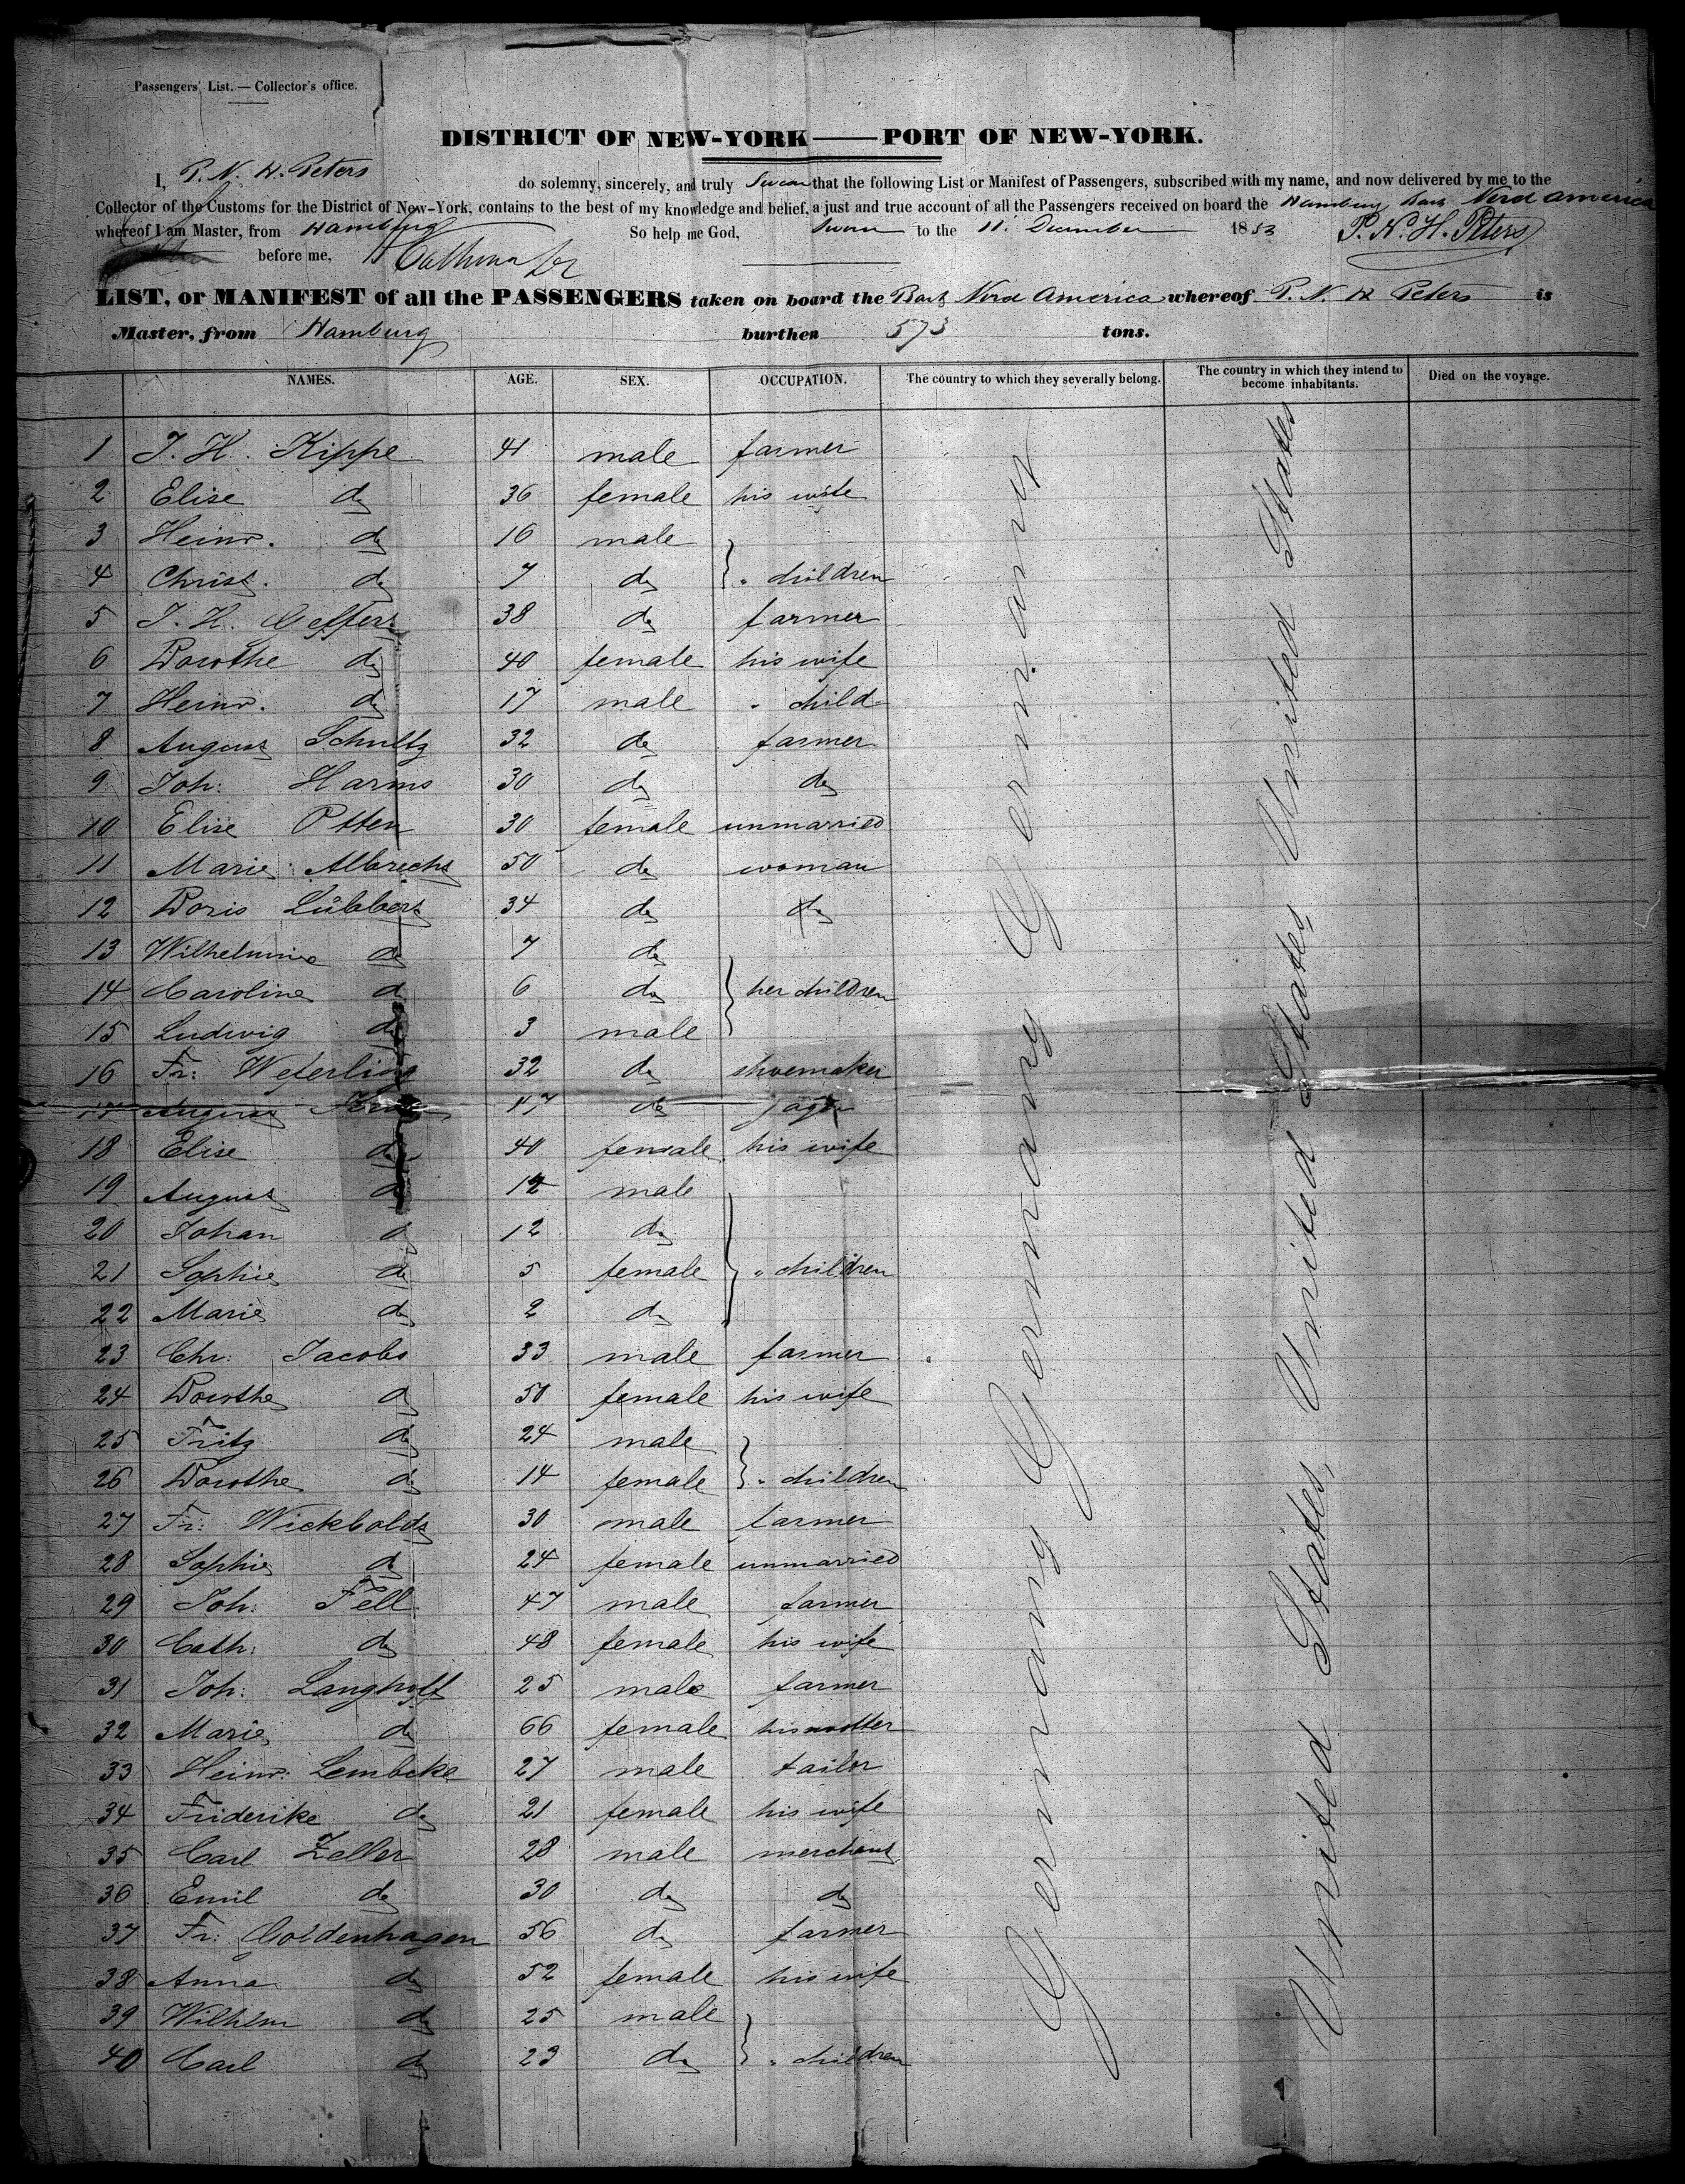 Passengers' List. — Collector's office.
DISTRICT OF NEW-YORK — PORT OF NEW-YORK.
I, P. N. H. Peters do solemny, sincerely, and truly Swear that the following List or Manifest of Passengers, subscribed with my name, and now delivered by me to the
Collector of the Customs for the District of New-York, contains to the best of my knowledge and belief, a just and true account of all the Passengers received on board the Hamburg Bark Nord America
whereof I am Master, from Hamburg So help me God, Sworn to the 11. December 1853 P. N. H. Peters
before me,
LIST, or MANIFEST of all the PASSENGERS taken on board the Bark Nord America whereof P. N. H Peters is
Master, from Hamburg burthen 573 tons.
NAMES. AGE. SEX. OCCUPATION. The country to which they severally belong. The country in which they intend to become inhabitants. Died on the voyage.
1 J. H. Kippe 41 male farmer
2 Elise do 36 female his wife
3 Heinr. do 16 male
4 Christ. do 7 do } " children
5 J. H. Geffers 38 do farmer
6 Dorothe do 40 female his wife
7 Heinr. do 17 male " child
8 August Schultz 32 do farmer
9 Joh: Harms 30 do do
10 Elise Otten 30 female unmarried
11 Marie Albrecht 50 do woman
12 Doris Lübbers 34 do do
13 Wilhelmine do 7 do
14 Caroline do 6 do } her children
15 Ludwig do 3 male
16 Fr: Weferling 32 do shoemaker
17 August 47 do
18 Elise do 40 female his wife
19 August do 12 male
20 Johan do 12 do
21 Sophie do 5 female } " children
22 Marie do 2 do
23 Chr: Jacobs 33 male farmer
24 Dorothe do 50 female his wife
25 Fritz do 24 male
26 Dorothe do 14 female } " children
27 Fr: Wickboldt 30 male farmer
28 Sophie do 24 female unmarried
29 Joh: Fell 47 male farmer
30 Cath: do 48 female his wife
31 Joh: Langhoff 25 male farmer
32 Marie do 66 female his mother
33 Heinr: Lembcke 27 male tailor
34 Friderike do 21 female his wife
35 Carl Zeller 28 male merchant
36 Emil do 30 do do
37 Fr: Goldenhagen 56 do farmer
38 Anna do 52 female his wife
39 Wilhlm do 25 male
40 Carl do 23 do } " children
Germany Germany Germany Germany
United States, United States, United States, United States